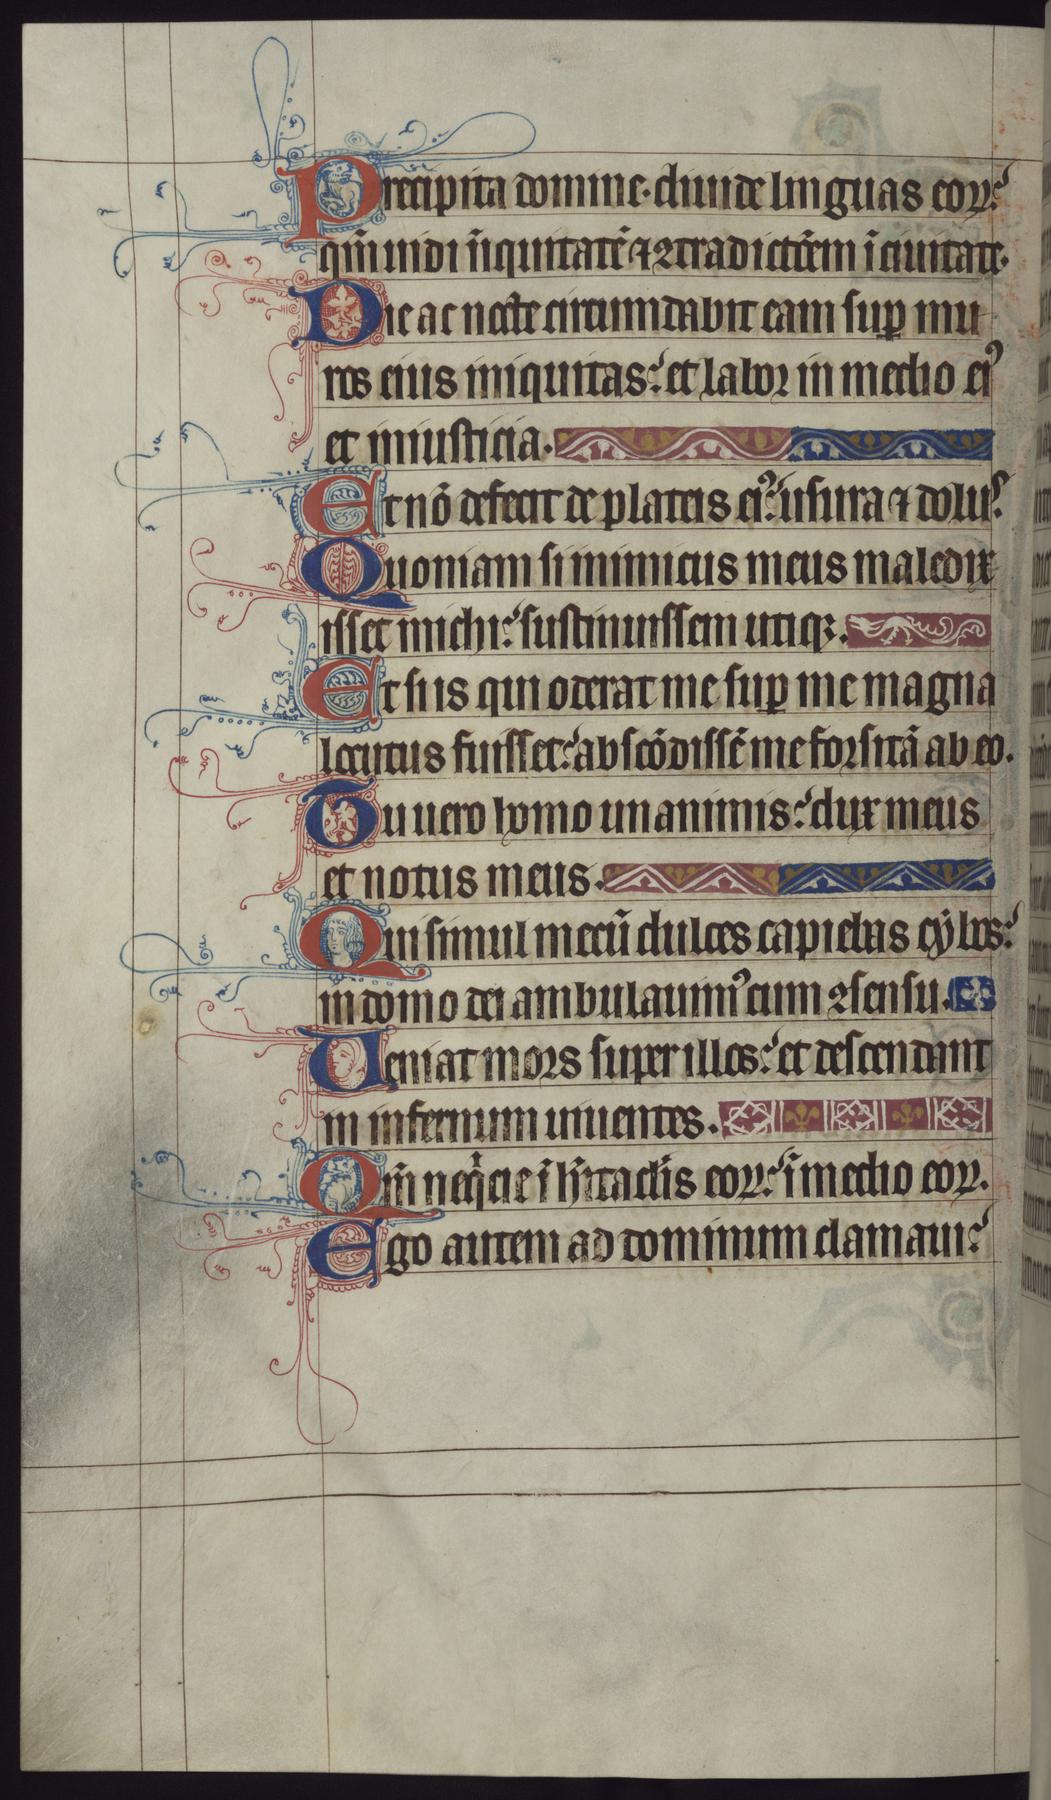 Precipita domine· diuide linguas eoꝝ:
qm̄ uidi īiquitatē ⁊ ꝯtradictōem ī ciuitate·
Die ac nocte circumdabit eam suꝑ mu
ros eius iniquitas: et labor in medio eiꝰ
et iniusticia·
Et nō defecit de plateis eiꝰ: usura ⁊ dolus:
Quoniam si inimicus meus maledix
isset michi: sustinuissem utiqꝫ·
Et si is qui oderat me suꝑ me magna
locutus fuisset: abscōdissē me forsitā ab eo·
Tu uero homo unanimis: dux meus
et notus meus·
Qui simul mecū dulces capiebas cybos:
in domo dei ambulauimꝰ cum ꝯsensu·
Ueniat mors super illos: et descendant
in infernum uiuentes·
Qm̄ neqͥcie ī hītaclis eoꝝ: ī medio eoꝝ·
Ego autem ad dominum clamaui: